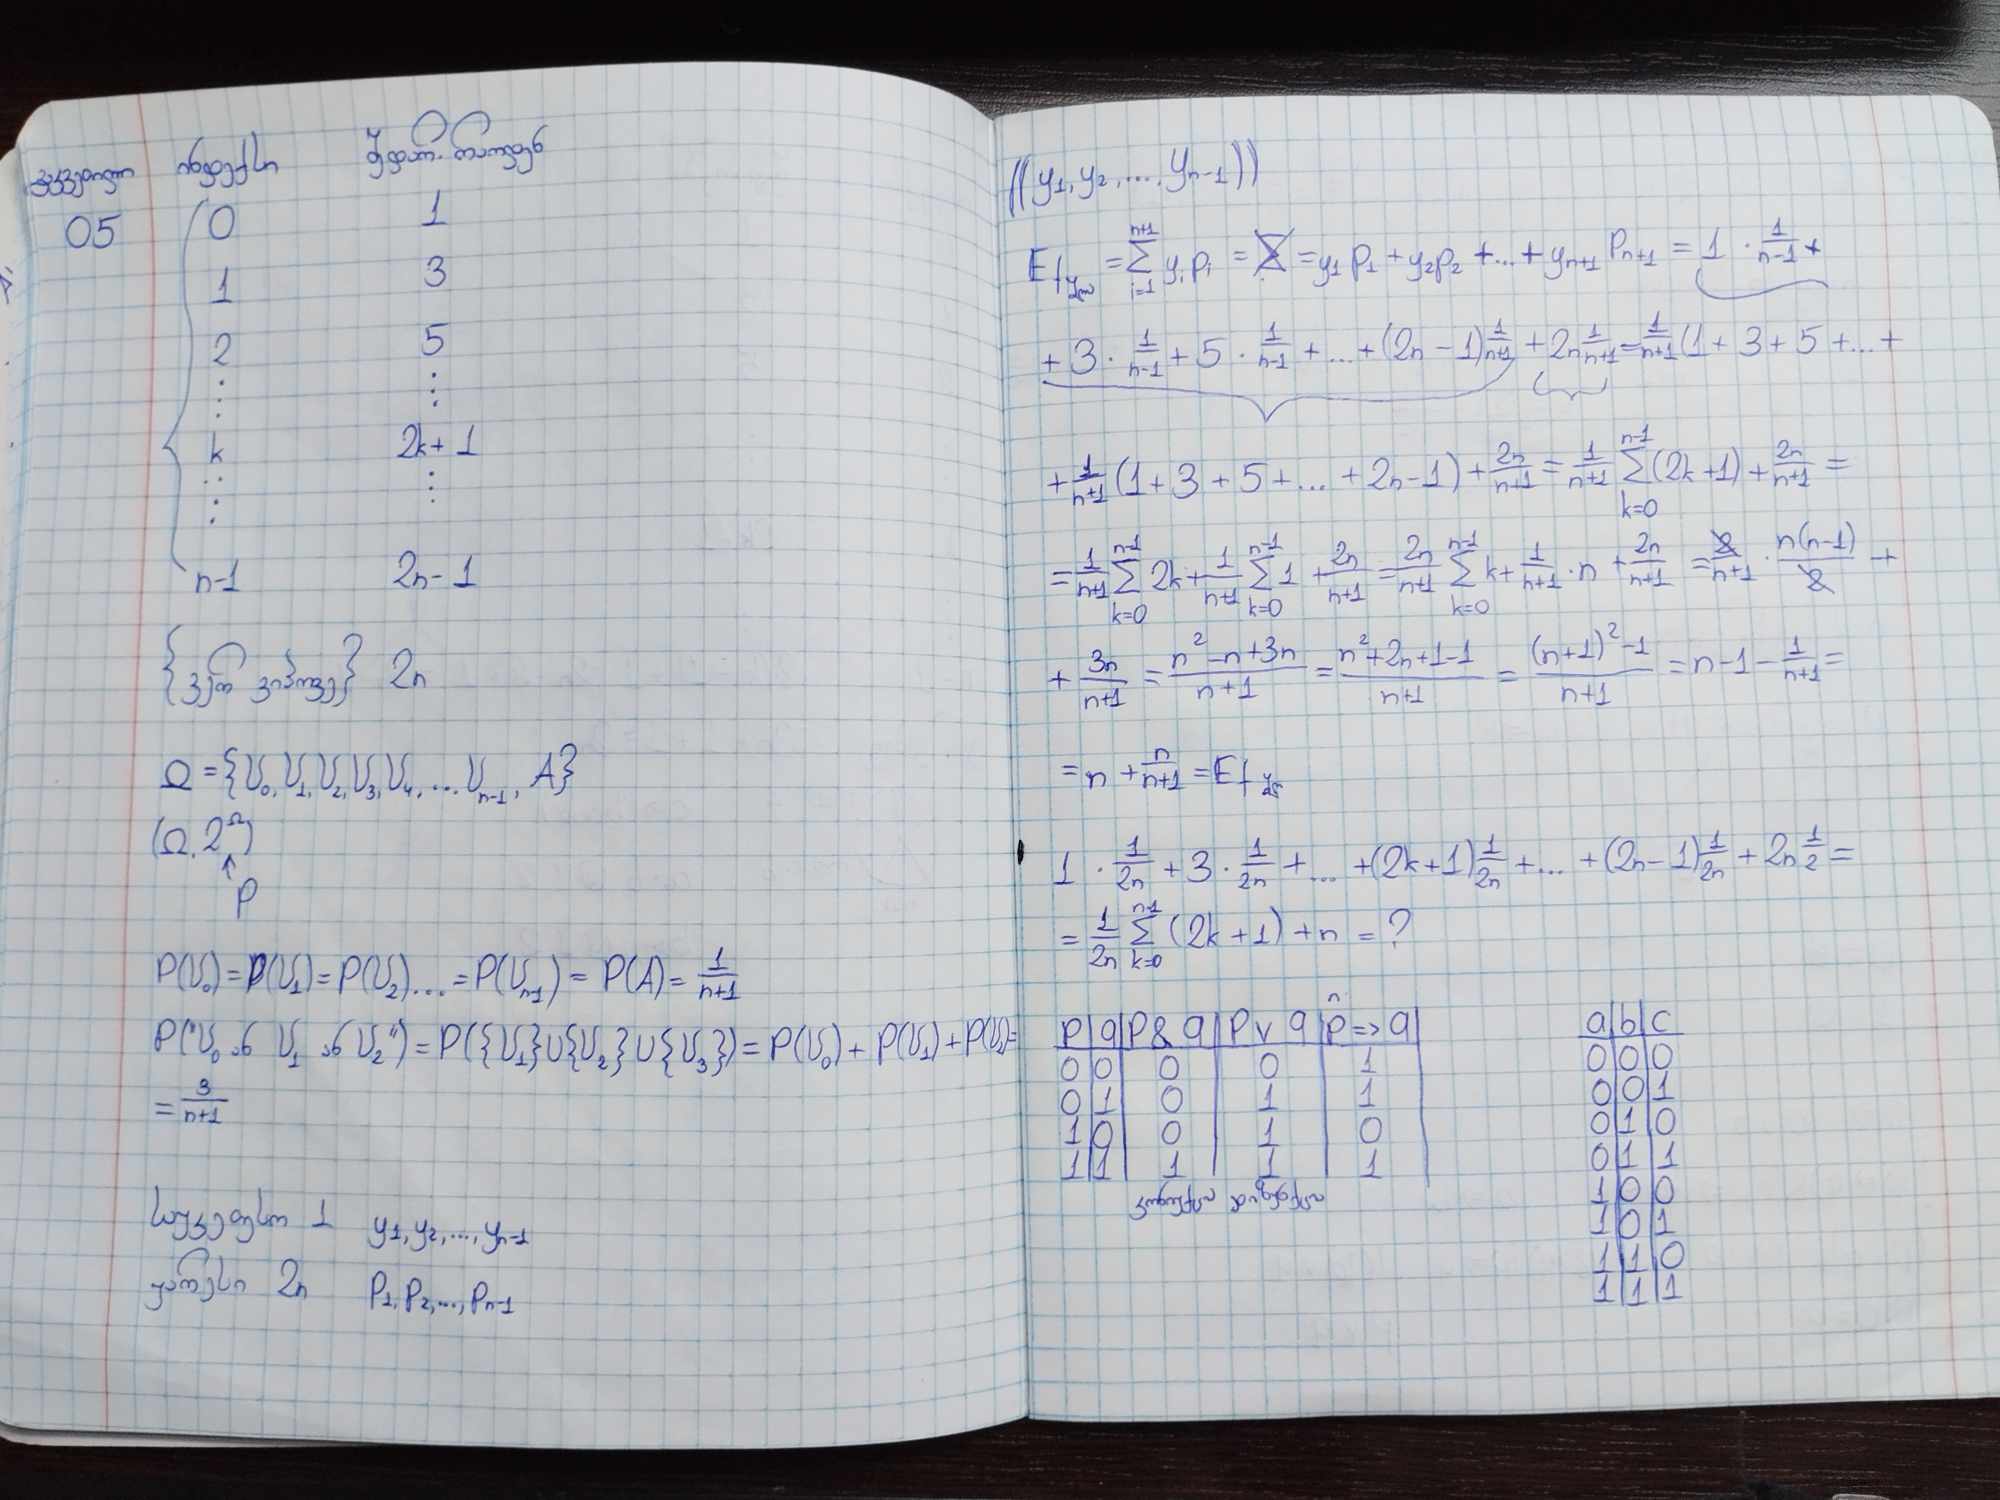 ინდექსი შედარ. რაოდენ
05 0 1
1 3
2 5
⋮ ⋮
k 2k+1
⋮ ⋮
n-1 2n-1
{ვერ ვიპოვე} 2n
Ω = {U₀, U₁, U₂, U₃, U₄, ... Uₙ₋₁, A}
(Ω, 2^Ω)
↑
P
P(U₀) = P(U₁) = P(U₂) ... = P(Uₙ₋₁) = P(A) = 1/(n+1)
P("U₀ ან U₁ ან U₂") = P({U₁}∪{U₂}∪{U₃}) = P(U₀) + P(U₁) + P(U₂) =
= 3/(n+1)
საუკეთესო 1 y₁, y₂, ..., yₙ₋₁
უარესი 2n P₁, P₂, ..., Pₙ₋₁
((y₁, y₂, ..., yₙ₋₁))
Ef = ∑_{i=1}^{n+1} yᵢpᵢ = = y₁p₁ + y₂p₂ + ... + yₙ₊₁Pₙ₊₁ = 1 · 1/(n-1) +
+ 3 · 1/(n-1) + 5 · 1/(n-1) + ... + (2n-1) 1/(n+1) + 2n 1/(n+1) = 1/(n+1) (1 + 3 + 5 + ... +
+ 1/(n+1) (1 + 3 + 5 + ... + 2n-1) + 2n/(n+1) = 1/(n+1) ∑_{k=0}^{n-1} (2k+1) + 2n/(n+1) =
= 1/(n+1) ∑_{k=0}^{n-1} 2k + 1/(n+1) ∑_{k=0}^{n-1} 1 + 2n/(n+1) = 2n/(n+1) ∑_{k=0}^{n-1} k + 1/(n+1) · n + 2n/(n+1) = 2/(n+1) · n(n-1)/2 +
+ 3n/(n+1) = (n²-n+3n)/(n+1) = (n²+2n+1-1)/(n+1) = ((n+1)²-1)/(n+1) = n-1-1/(n+1) =
= n + n/(n+1) = Ef
1 · 1/2n + 3 · 1/2n + ... + (2k+1) 1/2n + ... + (2n-1) 1/2n + 2n 1/2 =
= 1/2n ∑_{k=0}^{n-1} (2k+1) + n = ?
P q P & q P ∨ q P => q
0 0 0 0 1
0 1 0 1 1
1 0 0 1 0
1 1 1 1 1
a b c
0 0 0
0 0 1
0 1 0
0 1 1
1 0 0
1 0 1
1 1 0
1 1 1